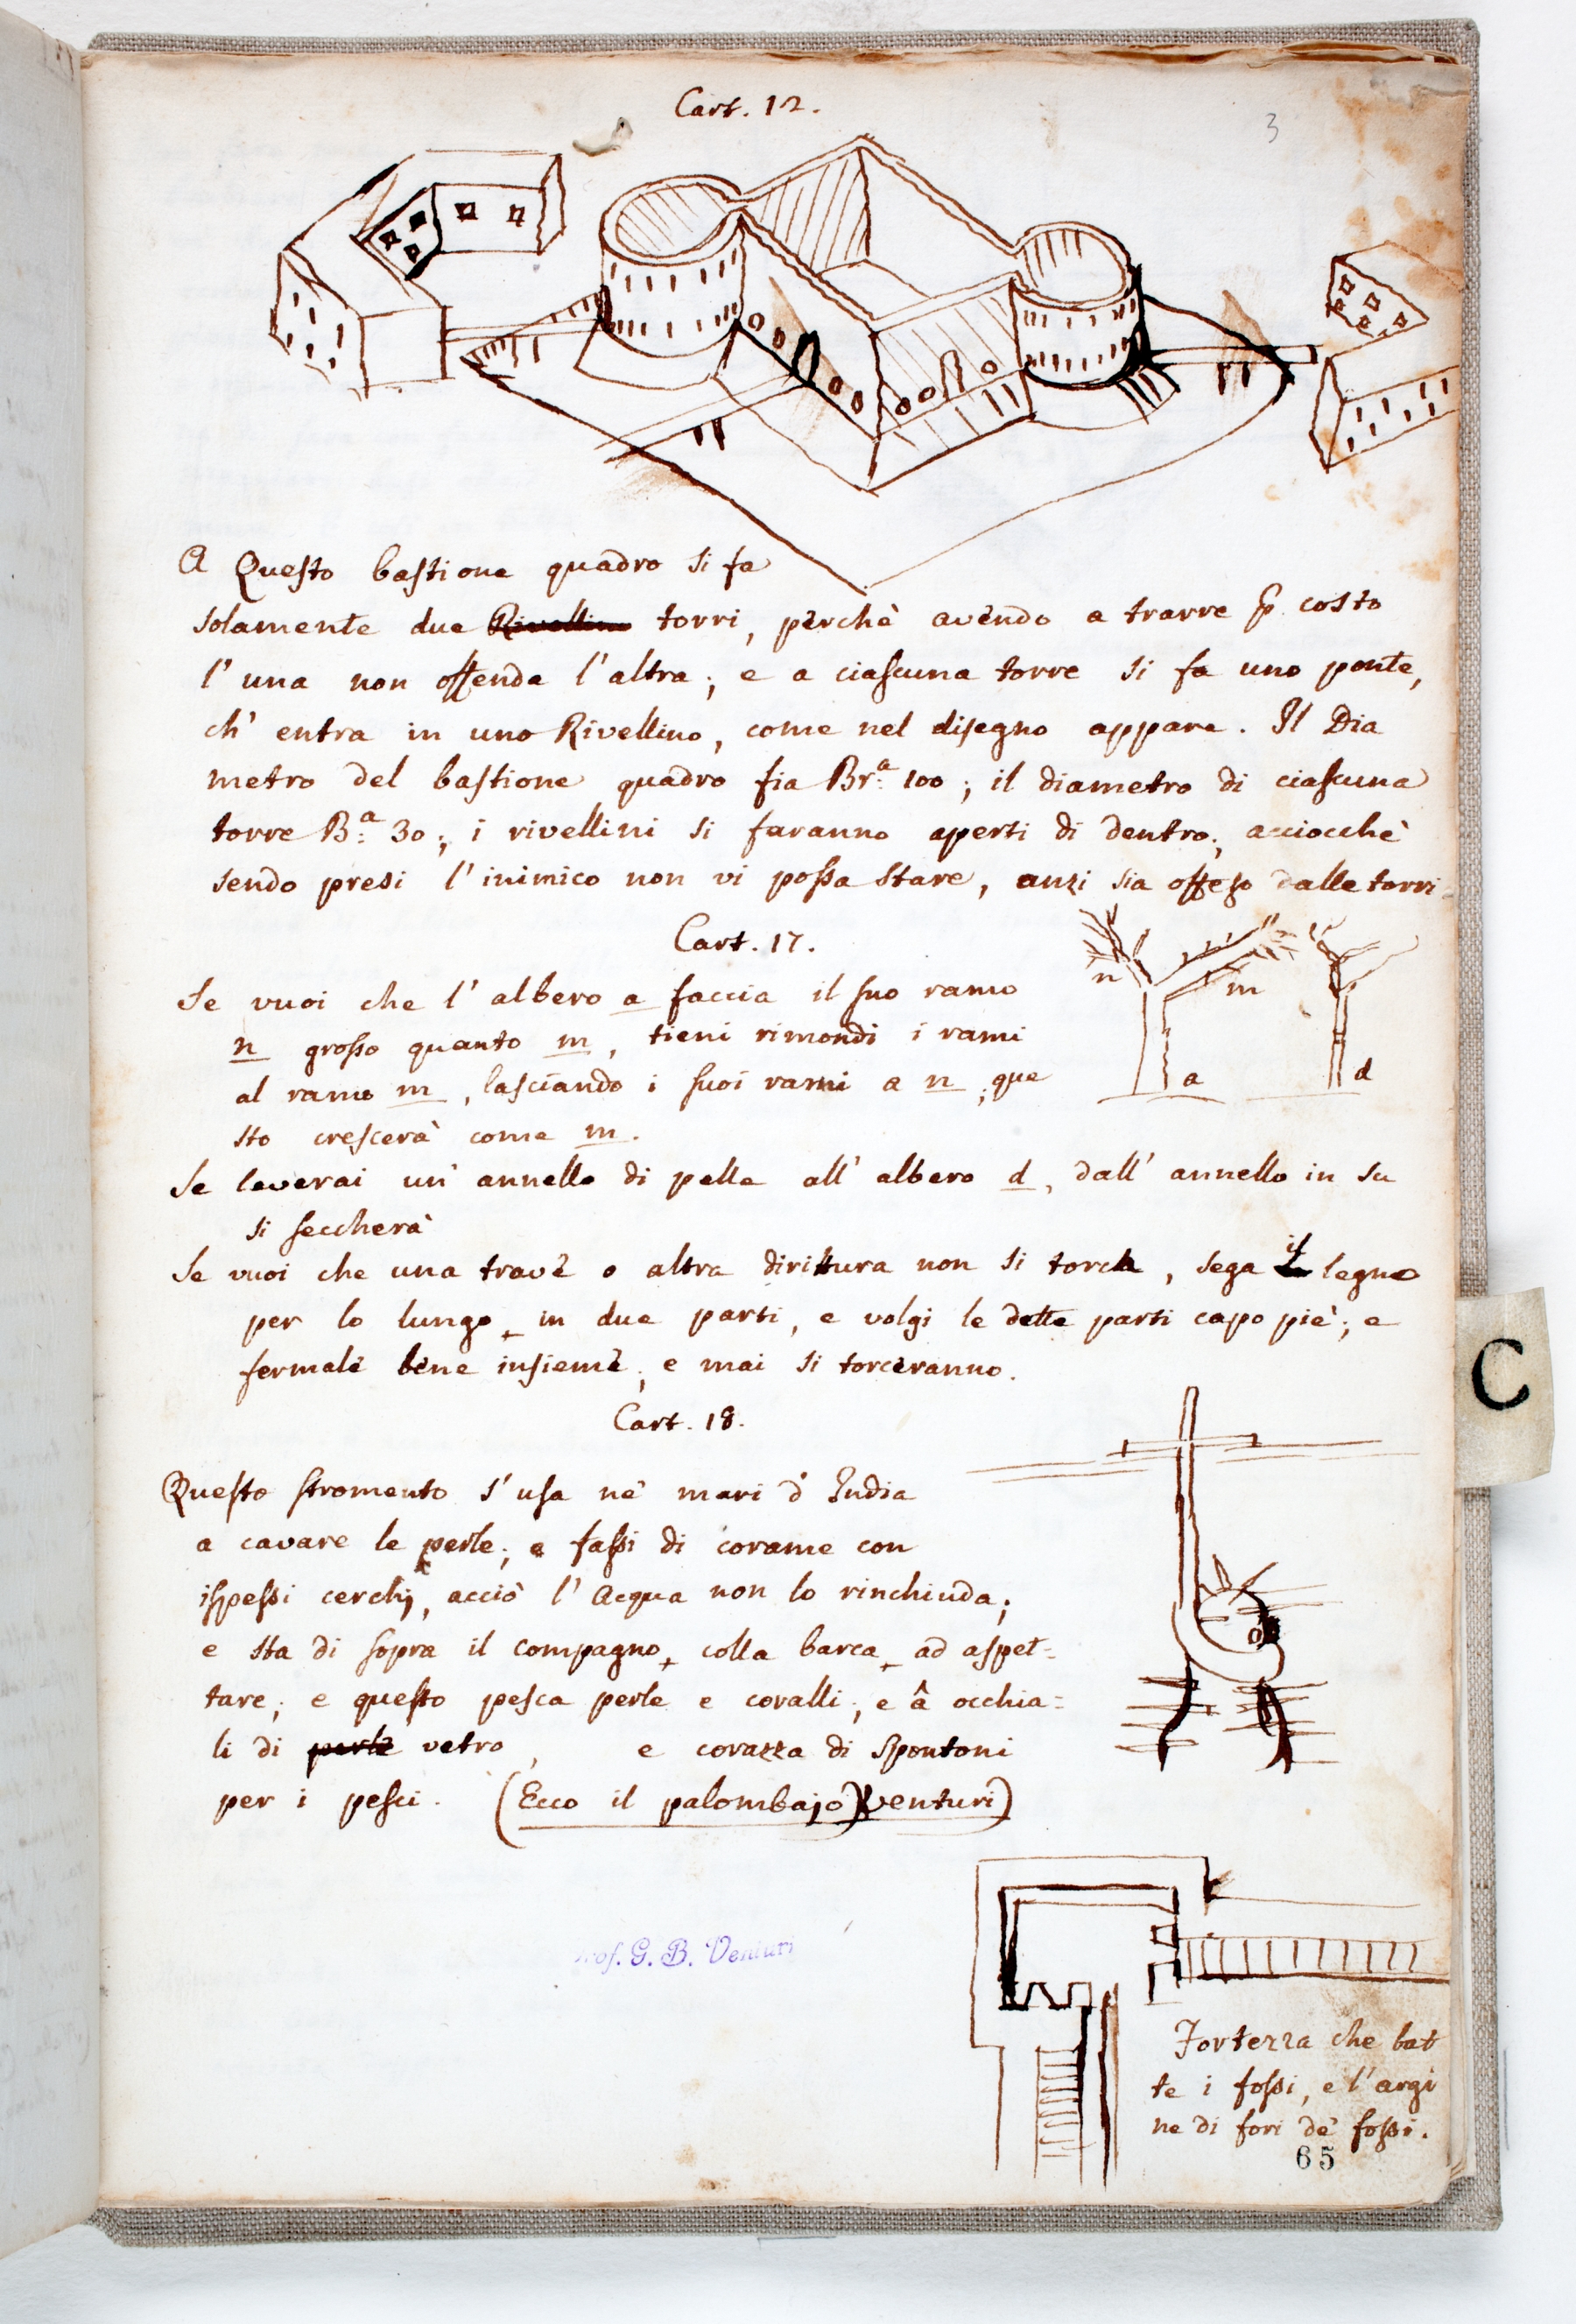 Cart. 12.
3
A Questo bastione quadro si fa
solamente due Rivellini torri, perchè avendo a trarre p costo
l'una non offenda l'altra; e a ciascuna torre si fa uno ponte,
ch' entra in uno Rivellino, come nel disegno appare. Il Dia
metro del bastione quadro fia Br.a 100; il diametro di ciascuna
torre B.a 30; i rivellini si faranno aperti di dentro; acciocchè
sendo presi l'inimico non vi possa stare, anzi sia offeso dalle torri
Cart. 17.
n
m
a
d
Se vuoi che l'albero a faccia il suo ramo
n grosso quanto m, tieni rimondi i rami
al ramo m, lasciando i suoi rami a n; que
sto crescerà come m.
Se leverai un' annello di pelle all' albero d, dall' annello in su
si seccherà
Se vuoi che una trave o altra dirittura non si torca, sega il legno
per lo lungo + in due parti, e volgi le dette parti capo piè; e
fermale bene insieme; e mai si torceranno.
Cart. 18.
Questo stromento s'usa ne' mari d' India
a cavare le perle; e fassi di corame con
ispessi cerchj, acciò l'Acqua non lo rinchiuda;
e sta di sopra il compagno + colla barca + ad aspet=
tare; e questo pesca perle e coralli; e â occhia=
li di perle vetro, e corazza di spontoni
per i pesci. (Ecco il palombajo)(Venturi)
Prof. G. B. Venturi
Fortezza che bat
te i fossi, e l'argi
ne di fori de' fossi.
65
C